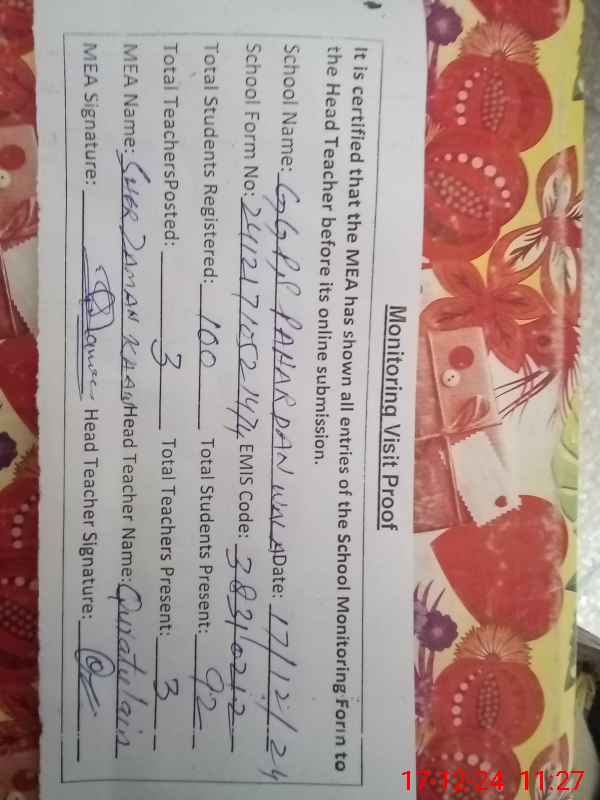 Monitoring Visit Proof
It is certified that the MEA has shown all entries of the School Monitoring Form to
the Head Teacher before its online submission.
School Name: GGPS PAHAR PAN WALA Date: 17/12/24
School Form No: EMIS Code: 38310212
Total Students Registered: 100 Total Students Present: 92
Total TeachersPosted: 3 Total Teachers Present: 3
MEA Name: SHER ZAMAN KHAN Head Teacher Name: Quratulain
MEA Signature: Head Teacher Signature:
17-12-24 11:27